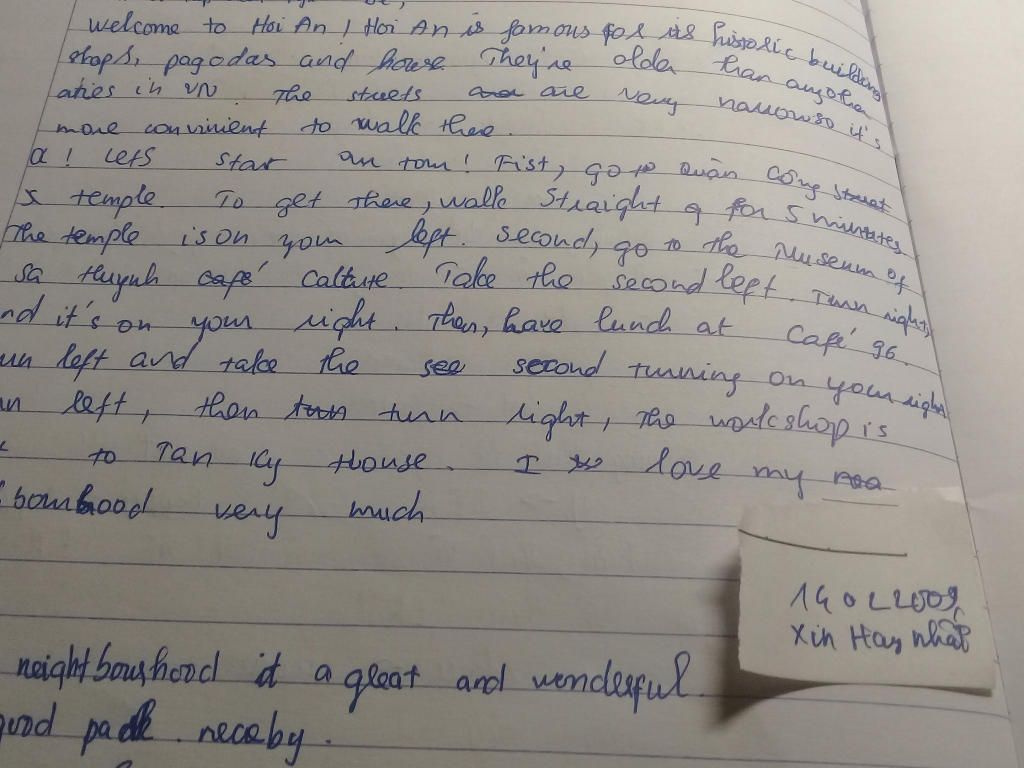 welcome to Hoi An ! Hoi An is famous for its historic building
shops, pagodas and house They're older than anyother
aties in VN. The streets are very narrowso it's
more convinient to walk there.
a ! Lets star an tour ! Fist, go to Quán Công street
s temple. To get there, walk straight q for 5 minutes
The temple is on your left. second, go to the Museum of
Sa Huynh café Calture. Take the second left. Turn right,
nd it's on your right. Then, have lunch at Café 96.
un left and take the see second turning on your right
n left, then turn turn right, The workshop is
to Tan Ky House. I love my
bourhood very much
14 02 2009
Xin Hay nhất
neightbourhood it a great and wonderful.
good park. neceby.